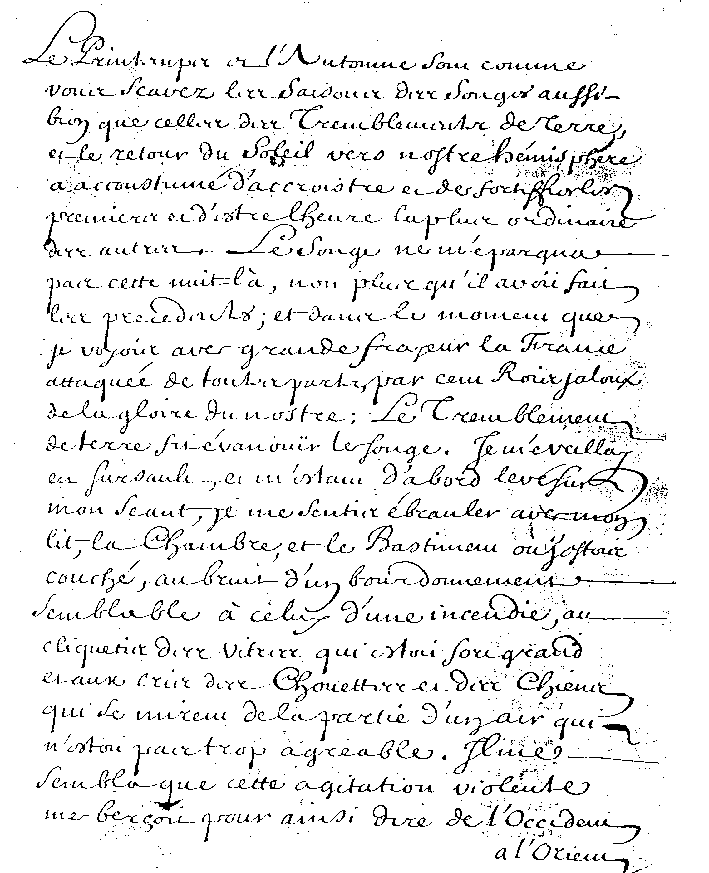 Le Printemps et l'Automne sont comme
vous scavez les saisons des songes aussi-
bien que celles des Tremblements de Terre,
et le retour du Soleil vers nostre hémisphère
a accoustumé d'accroistre et de fortiffier les
premiers et d'estre l'heure la plus ordinaire
des autres. Le songe ne m'epargna
pas cette nuit-là, non plus qu'il avoit fait
les precedents; et dans le moment que
je voyois avec grande frayeur la France
attaquée de toutes parts, par cent Rois jaloux
de la gloire du nostre; Le Tremblement
de terre fit évanouïr le songe. Je m'eveillay
en sursault, et m'estant d'abord levé sur
mon seant, je me sentis ébranler avec mon
lit, la Chambre, et le Bastiment où j'estois
couché, au bruit d'un bourdonnement
semblable à celuy d'une incendie, au
cliquetis des vitres qui estoit fort grand
et aux cris des Chouettes et des Chiens
qui se mirent de la partie d'un air qui
n'estoit pas trop agreable. Il me
sembla que cette agitation violente
me berçoit pour ainsi dire de l'Occident
a l'Orient